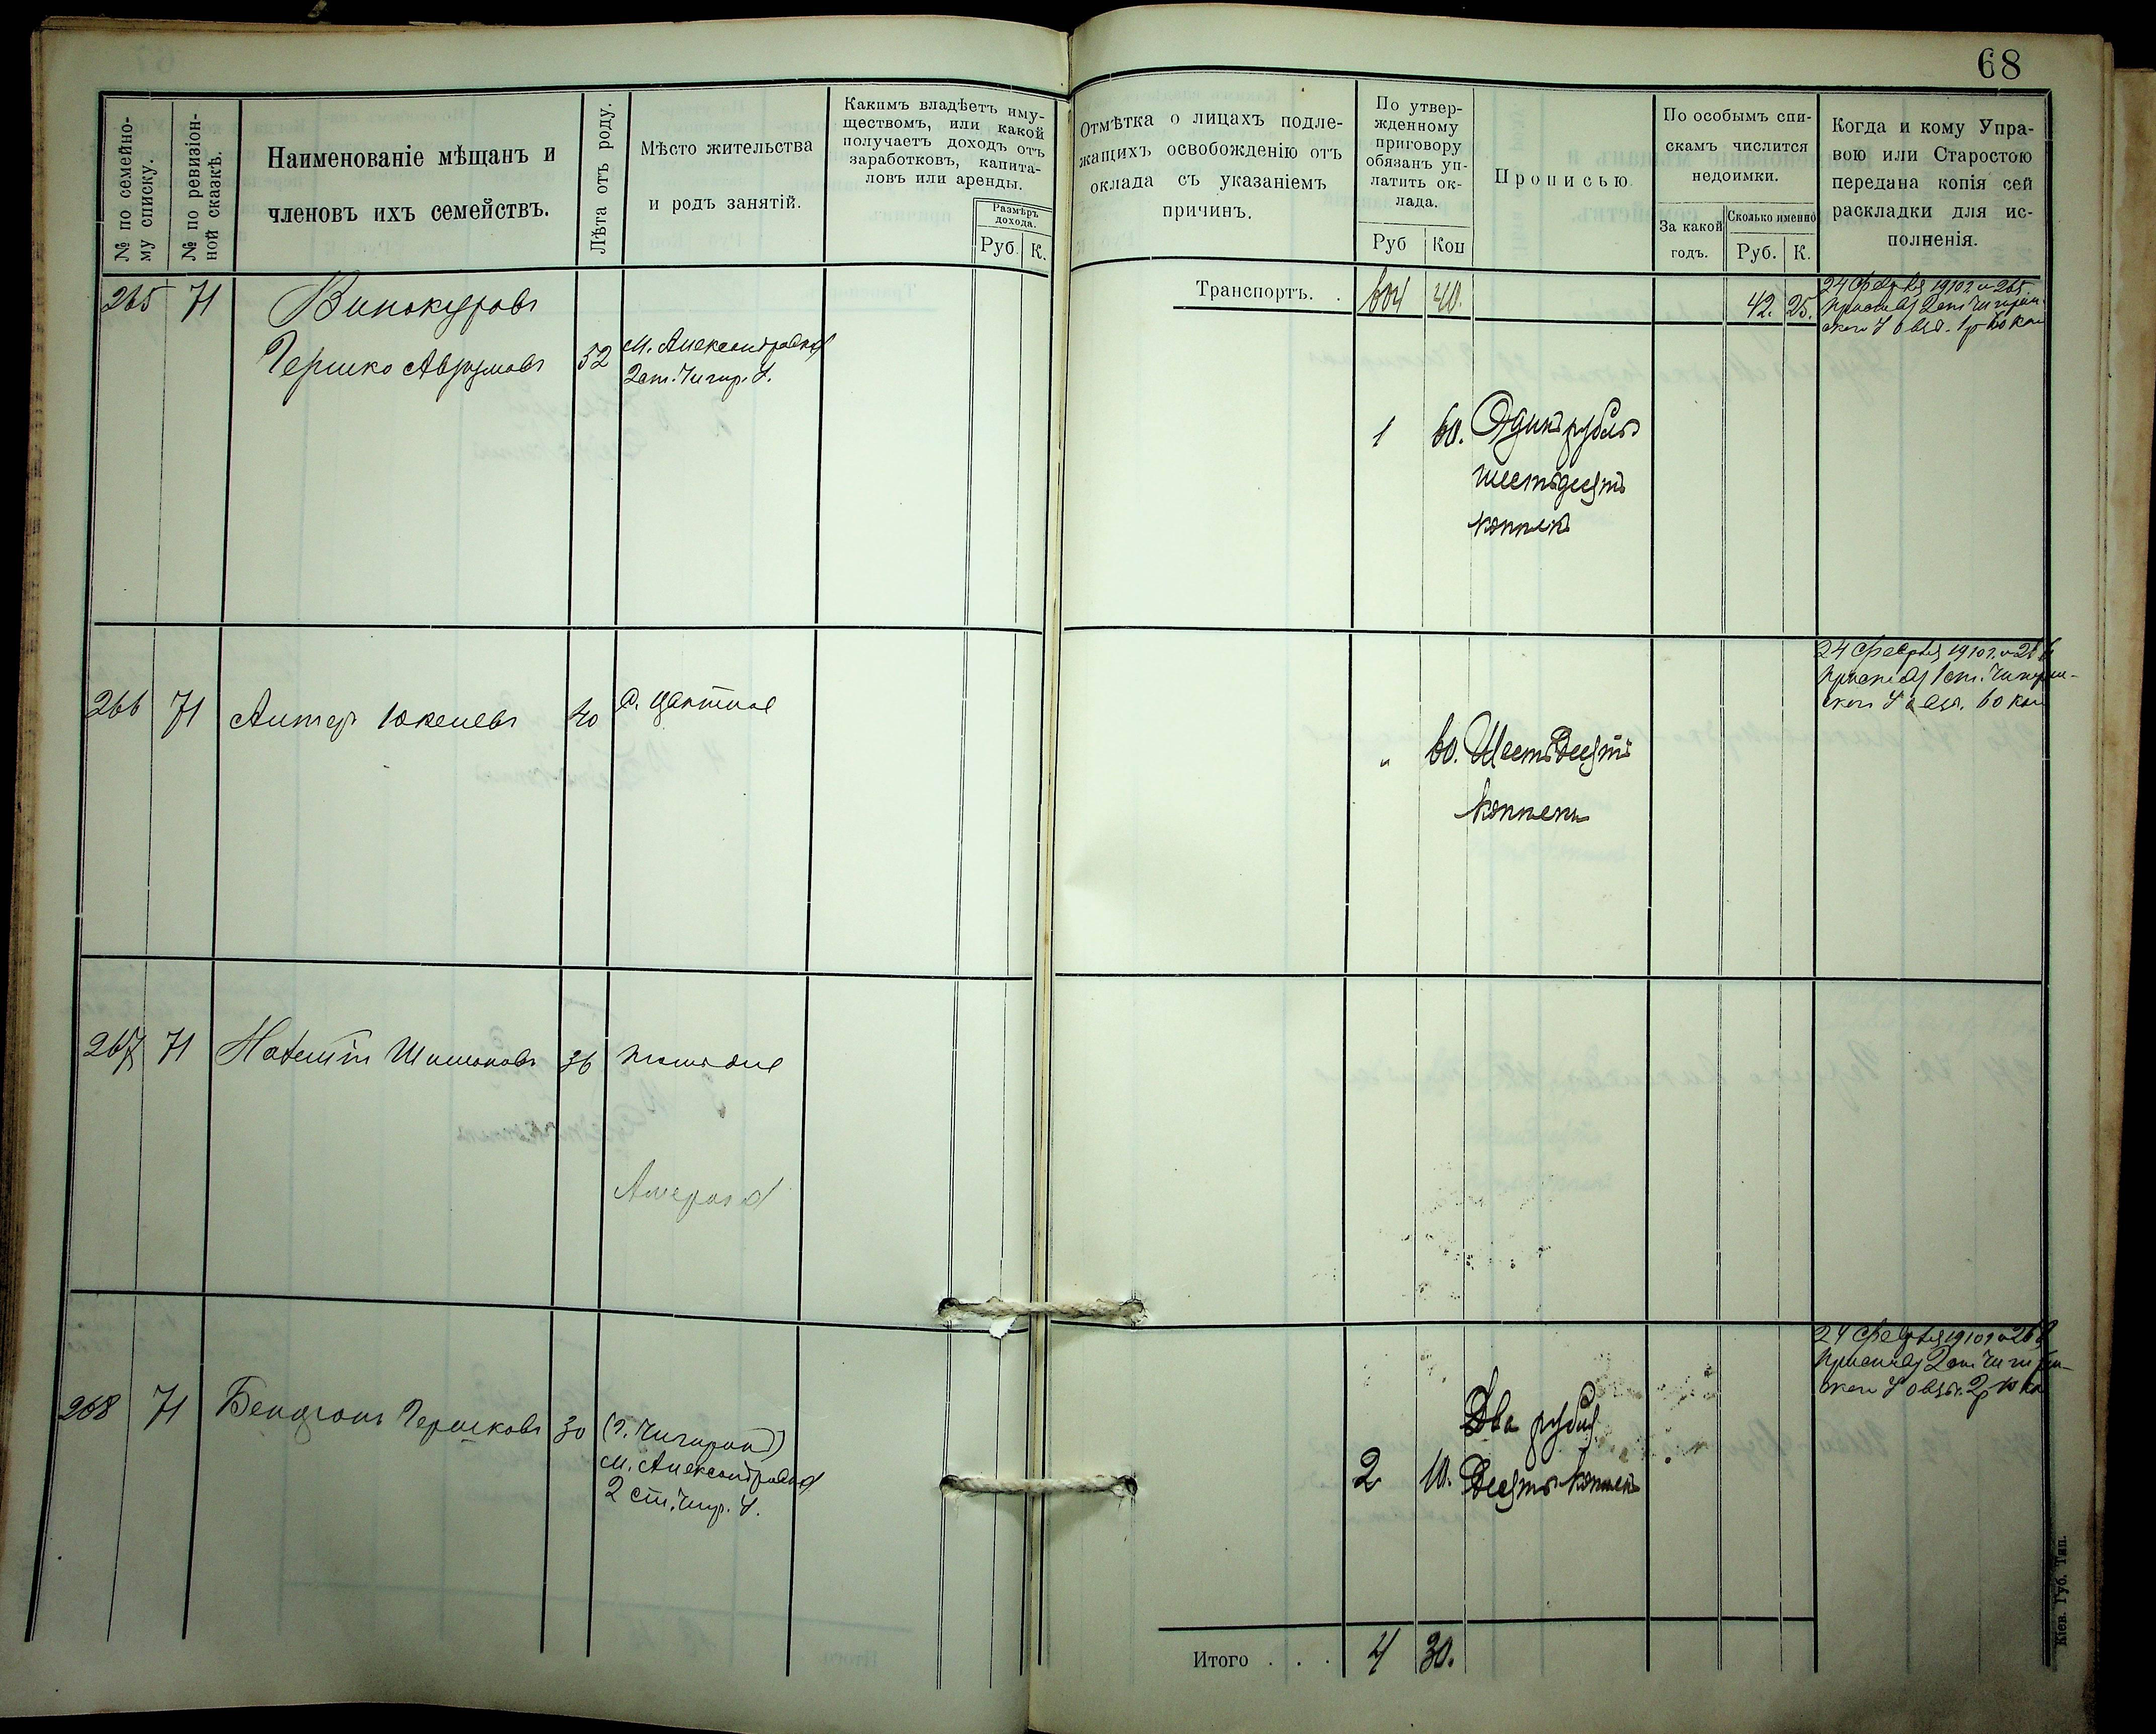 68
№ по семейно-
му списку.
№ по ревизіон-
ной сказкѣ.
Наименованіе мѣщанъ и
членовъ ихъ семействъ.
Лѣта отъ роду.
Мѣсто жительства
и родъ занятій.
Какимъ владѣетъ иму-
ществомъ, или какой
получаетъ доходъ отъ
заработковъ, капита-
ловъ или аренды.
Размѣръ
дохода.
Руб. К.
Отмѣтка о лицахъ подле-
жащихъ освобожденію отъ
оклада съ указаніемъ
причинъ.
По утвер-
жденному
приговору
обязанъ уп-
латить ок-
лада.
Руб Коп
Прописью.
По особымъ спи-
скамъ числится
недоимки.
За какой
годъ.
Сколько именно
Руб. К.
Когда и кому Упра-
вою или Старостою
передана копія сей
раскладки для ис-
полненія.
Транспортъ. . 604 40. 42. 25.
265 71 Винокуровъ
Гершко Аврумовъ 52 м. Александровка
2 ст. Чигир. у.
1 60. Одинъ рубль
шестьдесятъ
копѣекъ
24 Февраля 1910 г. № 265.
Приставу 2 ст. Чигирин-
скаго у 1 р 60 коп
266 71 40 с.
" 60. Шестьдесятъ
копѣекъ
24 Февраля 1910 г. № 266
Приставу 1 ст. Чигирин-
скаго у 60 коп
267 71 Шимоновъ 36
Америка
268 71 Бенціонъ Гершковъ 30 (г. Чигиринъ)
м. Александровка
2 ст. Чигир. у.
2 10. Два рубля
Десять копѣекъ
24 Февраля 1910 г. № 268
Приставу 2 ст Чигирин-
скаго у 2 р 10 ко
Итого . . . 4 30.
Кіев. Губ. Тип.